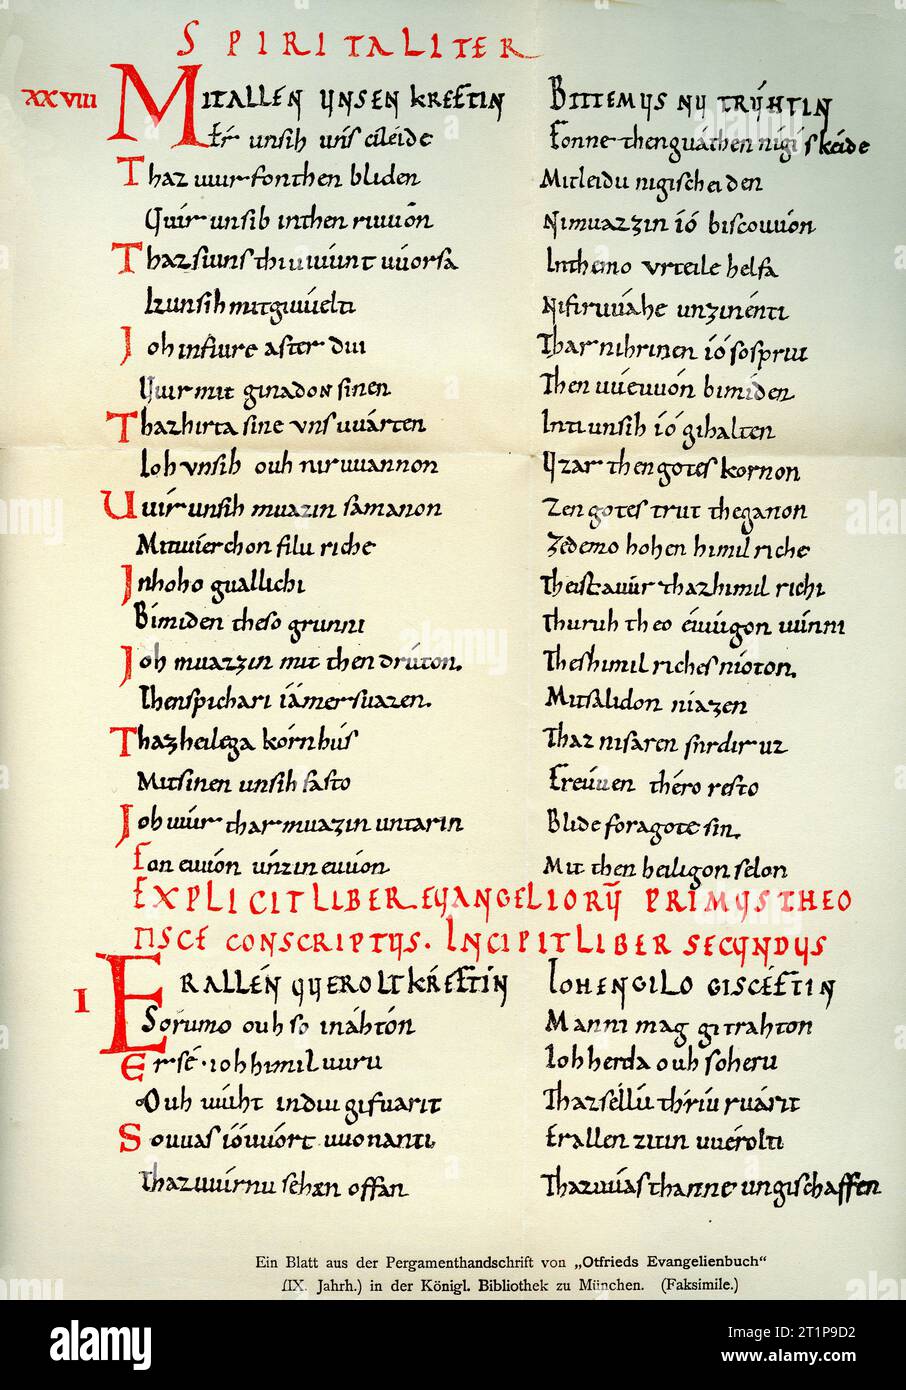 SPIRITALITER
XXVIII MITALLEN UNSEN KREFTIN BITTEMUS NU TRUHTIN
Er unsih uns eileide Fonne thenguathen nigi skeide
Thaz uuur fonthen bliden Mitleidu nigischeiden
Quir unsih inthen riuuon Nimuazzin io biscouuon
Thazsiuns thiu uuint uuorfa Inthemo urteile helfa
Izunsih mitgiuuelti Nifiruuahe unzinenti
Ioh infiure after diu Thar nibrinen io sosprui
Uuir mit ginadon sinen Then uueuuon bimiden
Thazhirta sine uns uuarten Intiunsih io gihalten
Ioh unsih ouh niruuannon Uzar then gotes kornon
Uuir unsih muazin samanon Zen gotes trut theganon
Mituuerchon filu riche Zedemo hohen himilriche
Inhoho guallichi Theist auur thazhimilrichi
Bimiden theso grunni Thuruh theo euuigon uuinni
Ioh muazzin mit then druton. Theshimilriches nioton.
Thenspichari iamer suazen. Mitsalidon niazen
Thazheilega kornhus Thaz nisaren furdir uz
Mitsinen unsih fasto Freuuen thero resto
Ioh uuur thar muazin untarin Blide foragote sin.
Fon euuon unzin euuon. Mit then heiligon selon
EXPLICIT LIBER. EUANGELIORU PRIMUS THEO
TISCE CONSCRIPTUS. INCIPIT LIBER SECUNDUS
I ERALLEN UUEROLTKREFTIN IOHENGILO GISCEFTIN
Sorumo ouh so inahton Manni mag gitrahton
Er se. ioh himil uuru Ioh herda ouh so heru
Ouh uuiht indiu gifuarit Thazsellu thriu ruarit
Souuas io uuort uuonanti Erallen zitin uuerolti
Thazuuir nu sehen offan Thazuuas thanne ungischaffen
Ein Blatt aus der Pergamenthandschrift von „Otfrieds Evangelienbuch“
(IX. Jahrh.) in der Königl. Bibliothek zu München. (Faksimile.)
alamy
Image ID: 2T1P9D2
www.alamy.com